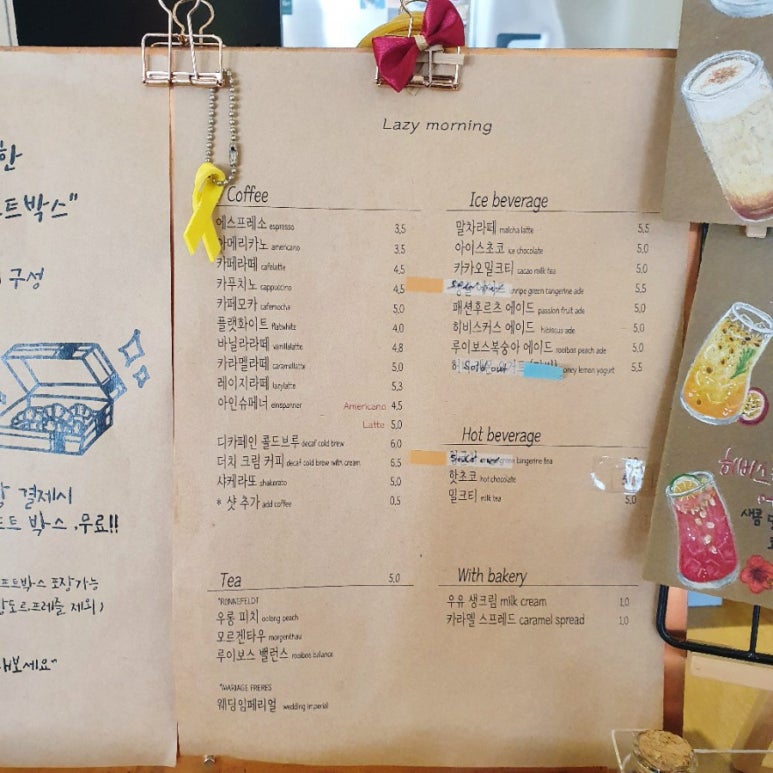 한
트박스"
구성
결제시
트 박스 .무료!!
프트박스 포장가능
보세요"
Lazy morning
Coffee
에스프레소 espresso 3.5
아메리카노 americano 3.5
카페라떼 cafelatte 4.5
카푸치노 cappuccino 4.5
카페모카 cafemocha 5.0
플랫화이트 flatwhite 4.0
바닐라라떼 vanillalatte 4.8
카라멜라떼 caramellatte 5.0
레이지라떼 lazylatte 5.3
아인슈페너 einspanner Americano 4.5
Latte 5.0
디카페인 콜드브루 decaf cold brew 6.0
더치 크림 커피 decaf cold brew with cream 6.5
샤케라또 shakerato 5.0
* 샷 추가 add coffee 0.5
Tea 5.0
*RONNEFELDT
우롱 피치 oolong peach
모르겐타우 morgenthau
루이보스 밸런스 rooibos balance
*MARIAGE FRERES
웨딩임페리얼 wedding imperial
Ice beverage
말차라떼 matcha latte 5.5
아이스초코 ice chocolate 5.0
카카오밀크티 cacao milk tea 5.0
unripe green tangerine ade 5.5
패션후르츠 에이드 passion fruit ade 5.0
히비스커스 에이드 hibiscus ade 5.0
루이보스복숭아 에이드 rooibos peach ade 5.0
Sold out honey lemon yogurt 5.5
Hot beverage
green tangerine tea
핫초코 hot chocolate
밀크티 milk tea 5.0
With bakery
우유 생크림 milk cream 1.0
카라멜 스프레드 caramel spread 1.0
히비스
새콤